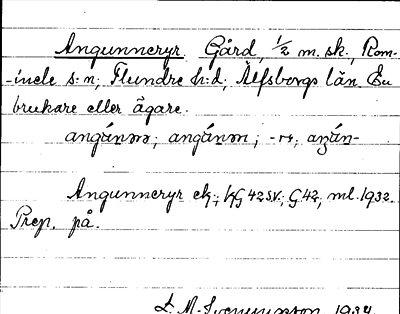 Angunneryr Gård, 1/2 m. sk., Rom-
-inele s:n; Flundre h:d; Älfsborgs län. En
brukare eller ägare.
angánəɷ; angánəɷ; -rı; aŋán-
Angunneryr ek., kG 42 sv.; G 42, ml. 1932.
Prep. på.
L. M. Svenungsson 1932.